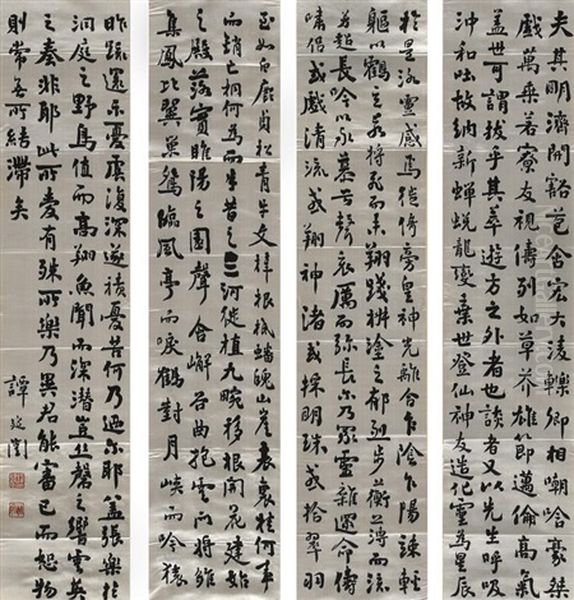 夫其明濟開豁苞含宏大淩轢卿相嘲哈豪桀
戲萬乘若寮友視儔列如草芥雄節邁倫高氣
蓋世可謂拔乎其萃遊方之外者也談者又以先生呼吸
沖和吐故納新蟬蛻龍變棄世登仙神友造化靈為星辰
於是洛靈感焉徙倚旁皇神光離合乍陰乍陽竦輕
軀以鶴立若將飛而未翔踐椒塗之郁烈步蘅薄而流
芳超長吟以永慕兮聲哀厲而彌長爾乃眾靈雜遝命儔
嘯侶或戲清流或翔神渚或採明珠或拾翠羽
至如白鹿貞松青牛文梓根柢蟠魄山崖表裏桂何事
而銷亡桐何為而半昔之三河徙植九畹移根開花建始
之殿落實睢陽之園聲含嶰谷曲抱雲門將雛
集鳳比翼巢鴛臨風亭而唳鶴對月峽而吟猿
昨疏還示憂虞復深遂積憂苦何乃過爾耶蓋張樂於
洞庭之野鳥值而高翔魚聞而深潛豈絲磬之響雲英
之奏非耶此所愛有殊所樂乃異君能審己而恕物
則常無所結滯矣
譚延闓